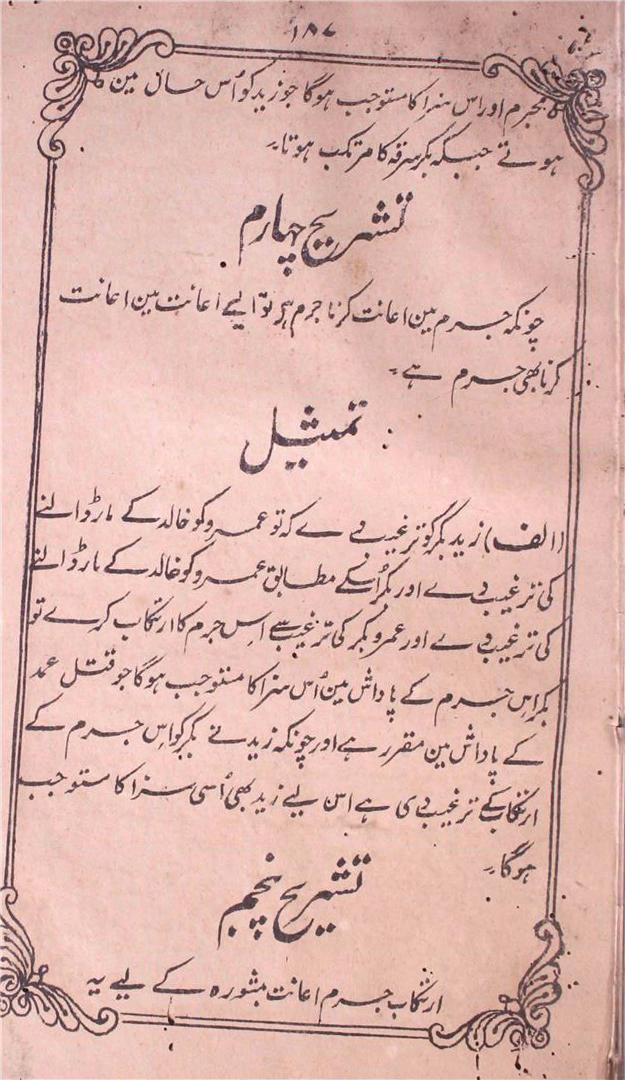 ۱۸۷
کا مجرم اور اس سزا کا مستوجب ہوگا جو زید کو اُس حال مین
ہوتے جبکہ بکر سرقہ کا مرتکب ہوتا۔
تشریح چہارم
چونکہ جرم مین اعانت کرنا جرم ہے تو ایسے اعانت مین اعانت
کرنا بھی جرم ہے۔
تمثیل
(الف) زید بکر کو ترغیب دے کہ تو عمرو کو خالد کے مار ڈالنے
کی ترغیب دے اور بکر اُسکے مطابق عمرو کو خالد کے مار ڈالنے
کی ترغیب دے اور عمرو بکر کی ترغیب سے اِس جرم کا ارتکاب کرے تو
بکر اِس جرم کے پاداش مین اُس سزا کا مستوجب ہوگا جو قتل عمد
کے پاداش مین مقرر ہے اور چونکہ زید نے بکر کو اِس جرم کے
ارتکاب کے ترغیب دی ہے اس لیے زید بھی اُسی سزا کا مستوجب
ہوگا۔
تشریح پنجم
ارتکاب جرم اعانت بمشورہ کے لیے یہ